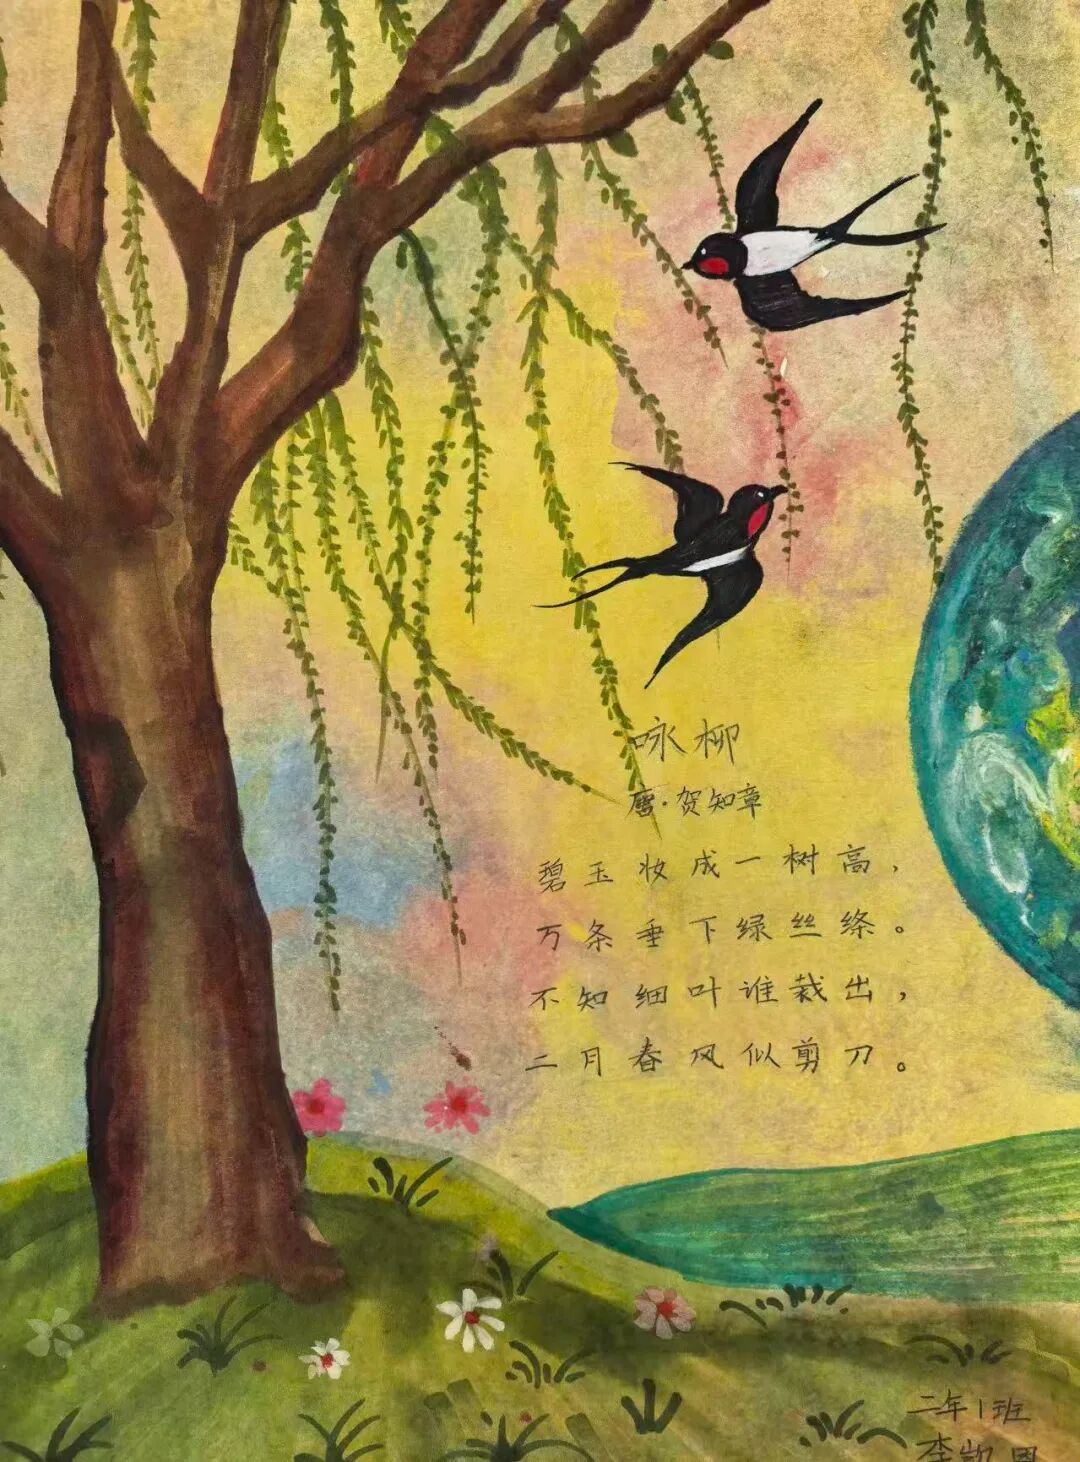 咏柳
唐·贺知章
碧玉妆成一树高，
万条垂下绿丝绦。
不知细叶谁裁出，
二月春风似剪刀。
二年1班
李凯恩